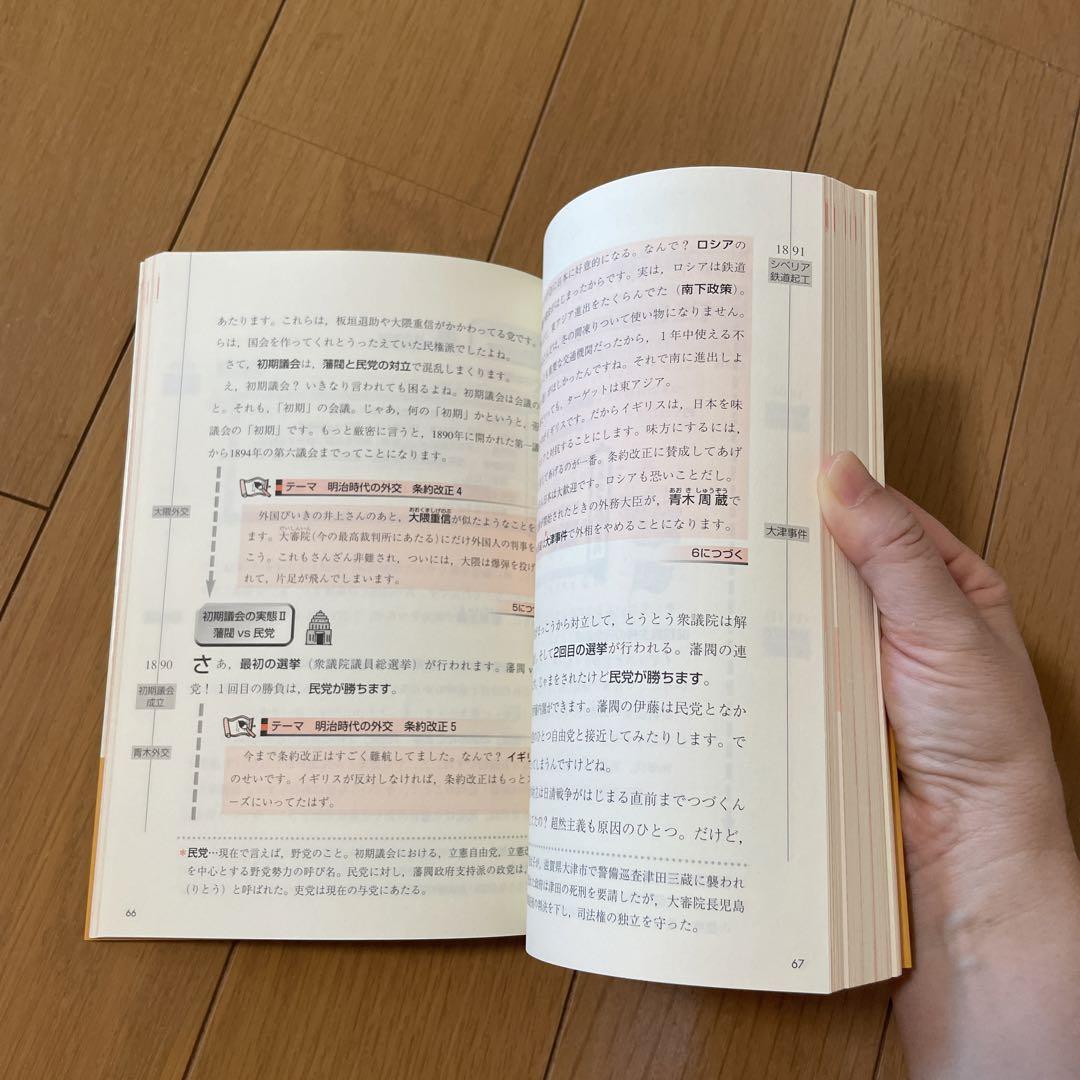 あたります。これらは，板垣退助や大隈重信がかかわってる党です。
らは，国会を作ってくれとうったえていた民権派でしたよね。
さて，初期議会は，藩閥と民党の対立で混乱しまくります。
え，初期議会？ いきなり言われても困るよね。初期議会は会議の
と。それも，「初期」の会議。じゃあ，何の「初期」かというと，
議会の「初期」です。もっと厳密に言うと，1890年に開かれた第一
から1894年の第六議会までってことになります。
テーマ 明治時代の外交 条約改正4
大隈外交
おおくましげのぶ
外国びいきの井上さんのあと，大隈重信が似たようなことを
だいしんいん
ます。大審院(今の最高裁判所にあたる)にだけ外国人の判事を
こう。これもさんざん非難され，ついには，大隈は爆弾を投げ
れて，片足が飛んでしまいます。
5につ
初期議会の実態Ⅱ
藩閥 vs 民党
1890
初期議会
成立
さあ，最初の選挙（衆議院議員総選挙）が行われます。藩閥 v
党！ 1回目の勝負は，民党が勝ちます。
テーマ 明治時代の外交 条約改正5
青木外交
今まで条約改正はすごく難航してました。なんで？ イギリ
のせいです。イギリスが反対しなければ，条約改正はもっとス
ーズにいってたはず。
*民党…現在で言えば，野党のこと。初期議会における，立憲自由党，立憲改
を中心とする野党勢力の呼び名。民党に対し，藩閥政府支持派の政党は，
（りとう）と呼ばれた。吏党は現在の与党にあたる。
66
1891
シベリア
鉄道起工
日本に好意的になる。なんで？ ロシアの
がはじまったからです。実は，ロシアは鉄道
東アジア進出をたくらんでた（南下政策）。
は，冬の間凍りついて使い物になりません。
も重要な交通機関だったから，1年中使える不
がほしかったんですね。それで南に進出しよ
っても，ターゲットは東アジア。
イギリスです。だからイギリスは，日本を味
と対抗することにします。味方にするには，
てあげるのが一番。条約改正に賛成してあげ
日本は大歓迎です。ロシアも恐いことだし。
あおきしゅうぞう
開始されたときの外務大臣が，青木周蔵で
大津事件で外相をやめることになります。
6につづく
大津事件
っこうから対立して，とうとう衆議院は解
そして2回目の選挙が行われる。藩閥の連
じゃまをされたけど民党が勝ちます。
内閣ができます。藩閥の伊藤は民党となか
ひとつ自由党と接近してみたりします。で
てしまうんですけどね。
立は日清戦争がはじまる直前までつづくん
てたの？ 超然主義も原因のひとつ。だけど，
が，滋賀県大津市で警備巡査津田三蔵に襲われ
政府は津田の死刑を要請したが，大審院長児島
の判決を下し，司法権の独立を守った。
67